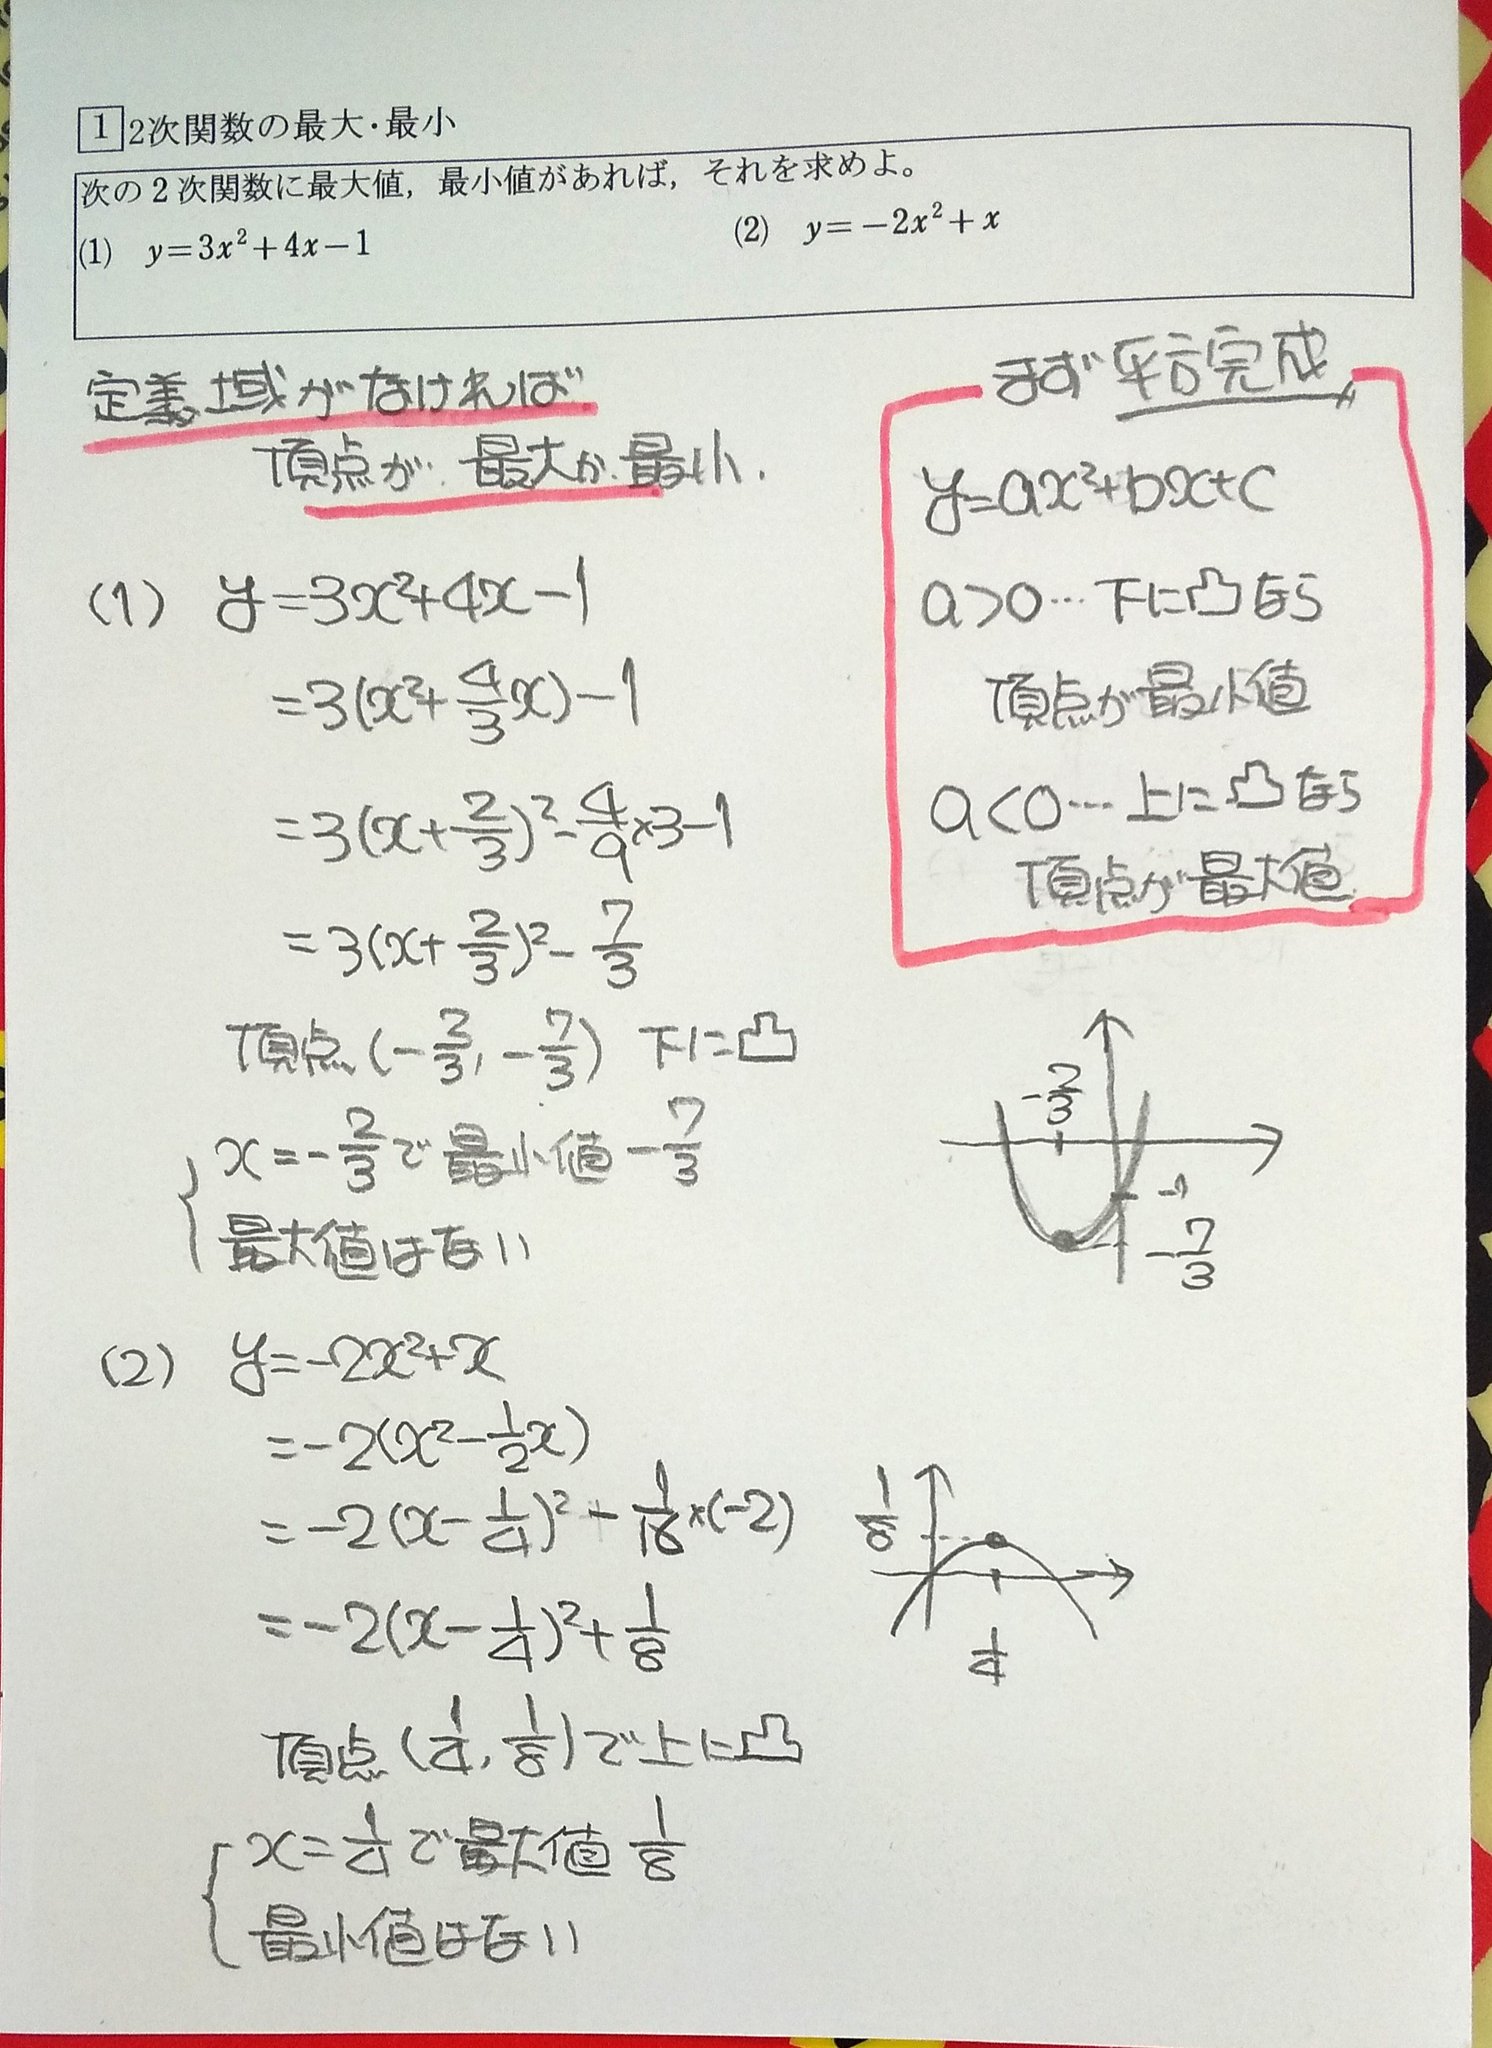 1 2次関数の最大・最小
次の2次関数に最大値，最小値があれば，それを求めよ。
(1) y=3x²+4x−1 (2) y=−2x²+x
定義域がなければ
頂点が 最大か 最小.
まず 平方完成
y=ax²+bx+c
a>0…下に凸なら
頂点が最小値
a<0…上に凸なら
頂点が最大値
(1) y=3x²+4x−1
=3(x²+4/3x)−1
=3(x+2/3)²−4/9×3−1
=3(x+2/3)²−7/3
頂点(−2/3, −7/3) 下に凸
x=−2/3で最小値 −7/3
最大値はない
−2/3
−1
−7/3
(2) y=−2x²+x
=−2(x²−1/2x)
=−2(x−1/4)²−1/16×(−2)
=−2(x−1/4)²+1/8
頂点(1/4, 1/8)で上に凸
x=1/4で最大値 1/8
最小値はない
1/8
1/4